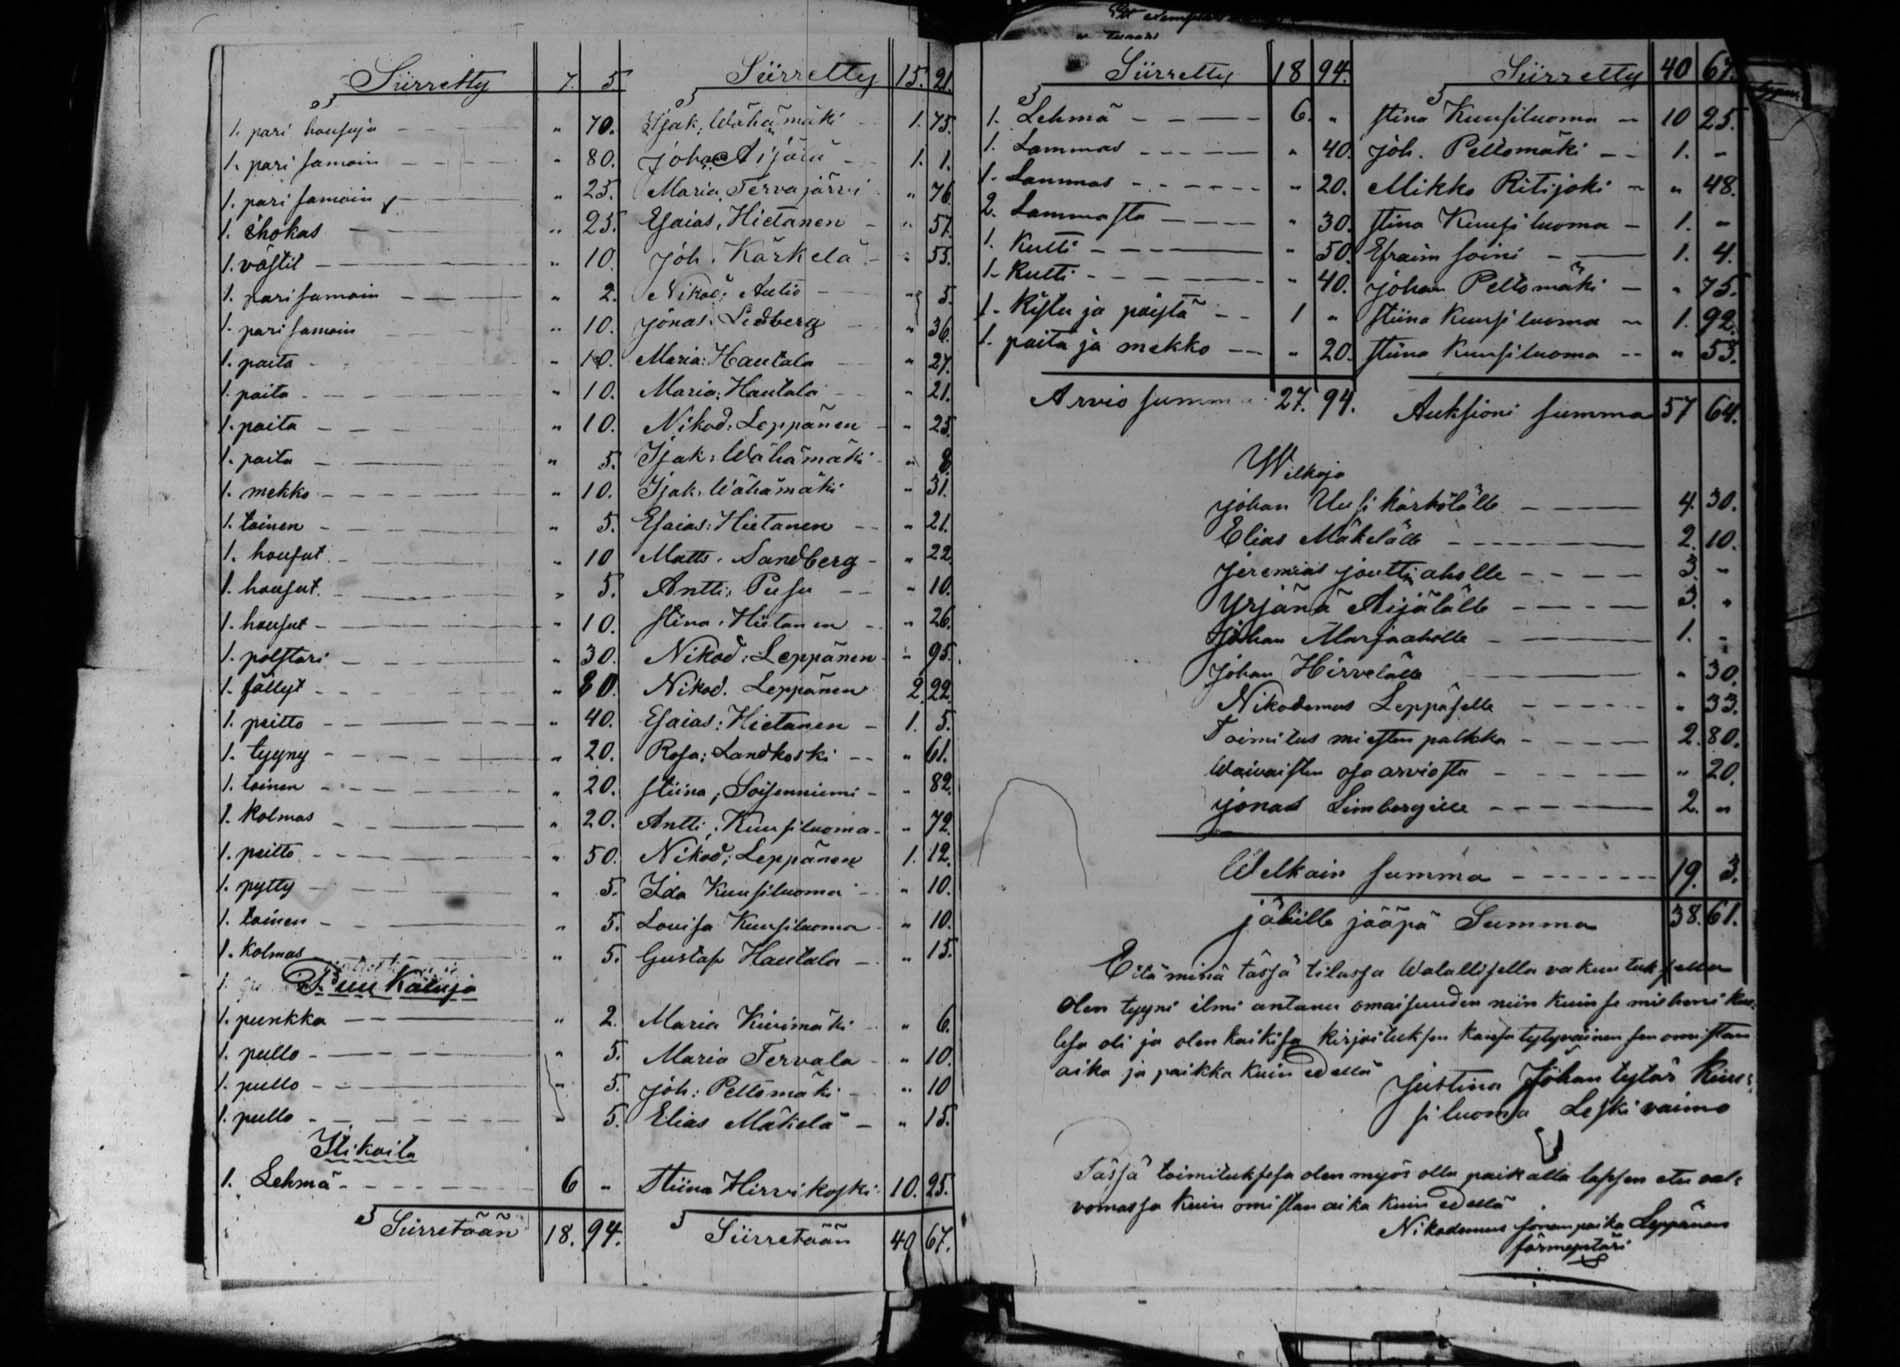 Siirretty 7. 5. Siirretty 15. 21.
1. pari housuja " 70. Isak Wähämäki 1. 75.
1. pari samoin " 80. Johan Äijälä 1. 1.
1. pari samoin " 25. Maria Tervajärvi " 76.
1. " 25. Esaias Hietanen " 57.
1. västil " 10. Joh. Kärkelä " 55.
1. pari samoin " 2. Nikod: Autio " 5.
1. pari samoin " 10. Jonas: Lidberg " 36.
1. paita " 10. Maria: Hautala " 27.
1. paita " 10. Maria: Hautala " 21.
1. paita " 10. Nikod: Leppänen " 25.
1. paita " 5. Isak: Wähämäki " 8.
1. mekko " 10. Isak: Wähämäki " 31.
1. toinen " 5. Esaias: Hietanen " 21.
1. housut " 10 Matts: Sandberg " 22.
1. housut " 5. Antti: Pusu " 10.
1. housut " 10. Stina: Hietanen " 26.
1. polstari " 30. Nikod: Leppänen " 95.
1. fällyt " 80. Nikod. Leppänen 2. 22.
1. peitto " 40. Esaias: Hietanen 1. 5.
1. tyyny " 20. Rosa: Landkoski " 61.
1. toinen " 20. Stiina; Soisenniemi " 82.
1. kolmas " 20. Antti; Kuusiluoma " 72.
1. peitto " 50. Nikod; Leppänen 1. 12.
1. pytty " 5. Ida Kuusiluoma " 10.
1. toinen " 5. Lovisa Kuusiluoma " 10.
1. kolmas " 5. Gustaf Hautala " 15.
Puu Kaluja
1. punkka " 2. Maria Kivimäki " 6.
1. pullo " 5. Maria Tervala " 10.
1. pullo " 5. Joh: Peltomäki " 10
1. pullo " 5. Elias Mäkelä " 15.
Itikoita
1. Lehmä 6 " Stiina Hirvikoski 10. 25.
Siirretään 18. 94. Siirretään 40 67.
Siirretty 18 94. Siirretty 40 67.
1. Lehmä 6. " Stina Kuusiluoma 10 25.
1. Lammas " 40. Joh. Peltomäki 1. "
1. Lammas " 20. Mikko Ritijoki " 48.
2. Lammasta " 30. Stina Kuusiluoma 1. "
1. Kutti " 50. Efraim Soini 1. 4.
1. Kutti " 40. Johan Peltomäki " 75.
1. 1 " Stiina Kuusiluoma 1. 92.
1. paita ja mekko " 20. Stiina Kuusiluoma " 53.
Arvio summa 27. 94. Auksioni summa 57 64.
Welkoja
Johan Uusikärkölälle 4. 30.
Elias Mäkelälle 2. 10.
Jeremias Jouttiaholle 3. "
Yrjänä Äijälälle 3. "
Johan Marjaaholle 1. "
Johan Hirvelälle " 30.
Nikodemus Leppäselle " 33.
Toimitus miesten palkka 2. 80.
Waivaisten osa arviosta " 20.
Jonas Limbergille 2. "
Welkain summa 19. 3.
jälille jääpä Summa 38. 61.
Että minä tässä tilassa Walallisella vakuutuksella
olen tyyni ilmi antanu omaisuuden niin kuin se mieheni kuo-
lesa oli ja olen kaikisa kirjoituksen kansa tytyväinen sen omistan
aika ja paikka kuin edellä
Justina Johan tytär Kuu-
siluoma Leski vaimo
Tässä toimituksesa olen myös ollu paikalla lapsen etu val-
vomassa kuin omistan aika kuin edellä
Nikodemus Jonan poika Leppänen
förmyntäri